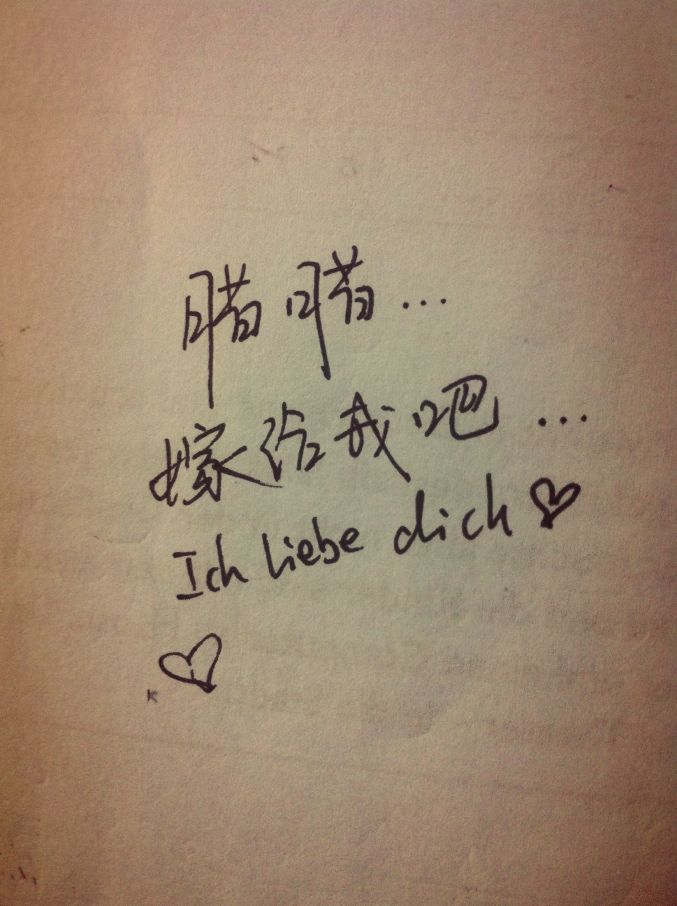 腊腊...
嫁给我吧...
Ich liebe dich